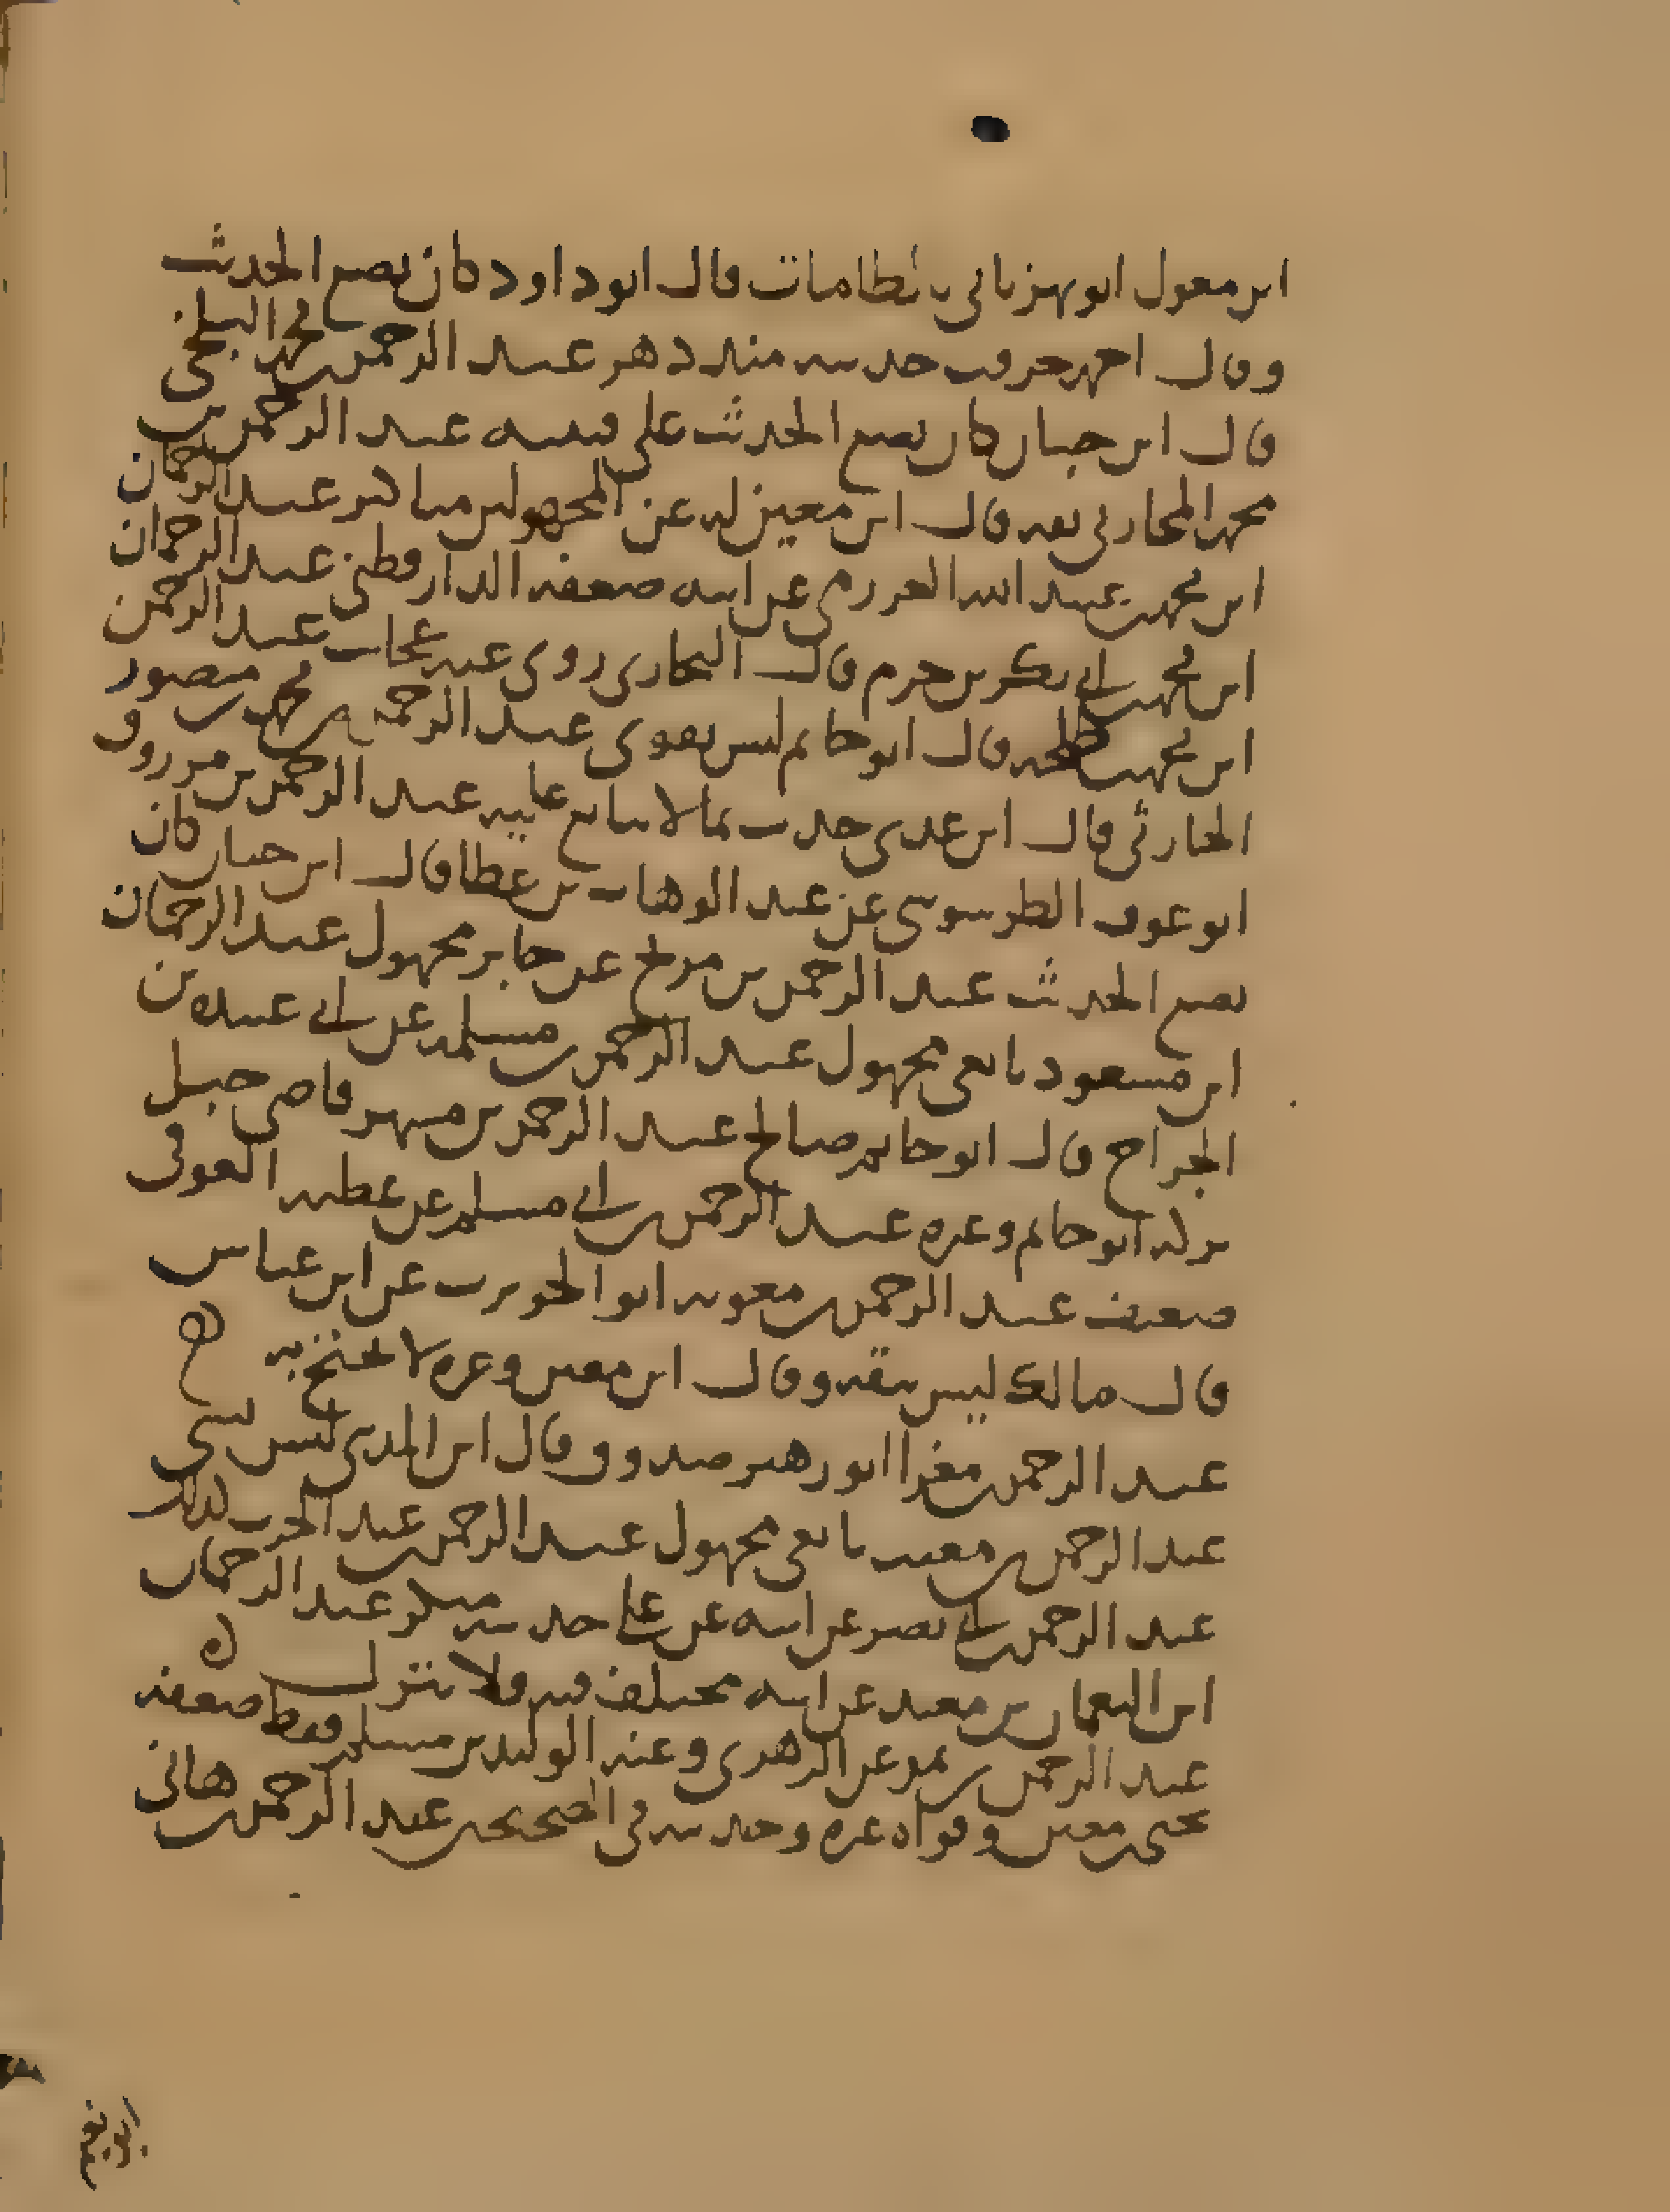 ابن مغول ابو بهز ياتي بالطامات قال ابو داود كان يضع الحديث
وقال احمد حرقت حديثه منذ دهر عبد الرحمن بن محمد البلخي
قال ابن حبان كان يضع الحديث على قتيبه عبد الرحمن بن
محمد المحاربي ثقه قال ابن معين له عن المجهولين مناكير عبد الرحمان
ابن محمد بن عبيد الله العرزمي عن ابيه ضعفه الدارقطني عبد الرحمان
ابن محمد بن ابي بكر بن حزم قال البخاري روى عنه عجائب عبد الرحمن
ابن محمد بن طلحه قال ابو حاتم ليس بقوي عبد الرحمن بن محمد بن منصور
الحارثي قال ابن عدي حدث بما لا يتابع عليه عبد الرحمن بن مرزوق
ابو عوف الطرسوسي عن عبد الوهاب بن عطا قال ابن حبان كان
يضع الحديث عبد الرحمن بن مريح عن جابر مجهول عبد الرحمان
ابن مسعود تابعي مجهول عبد الرحمن بن مسلمه عن ابي عبيده بن
الجراح قال ابو حاتم صالح عبد الرحمن بن مسهر قاضي جبل
تركه ابو حاتم وغيره عبد الرحمن بن ابي مسلم عن عطيه العوفي
ضعيف عبد الرحمن بن معويه ابو الحويرث عن ابن عباس
قال مالك ليس بثقه وقال ابن معين وغيره لا يحتج به
عبد الرحمن بن مغرا ابو زهير صدوق وقال ابن المديني ليس بشي
عبد الرحمن بن معتب تابعي مجهول عبد الرحمن عبد الحرب كذلك
عبد الرحمن بن ابي نصر عن ابيه عن علي حديثه منكر عبد الرحمان
ابن النعمان بن معبد عن ابيه مختلف فيه فلا يترك
عبد الرحمن بن نمر عن الزهري وعنه الوليد بن مسلم فقط ضعفه
يحيى بن معين وقواه غيره وحديثه في الصحيحين عبد الرحمن بن هاني
ابو نعيم